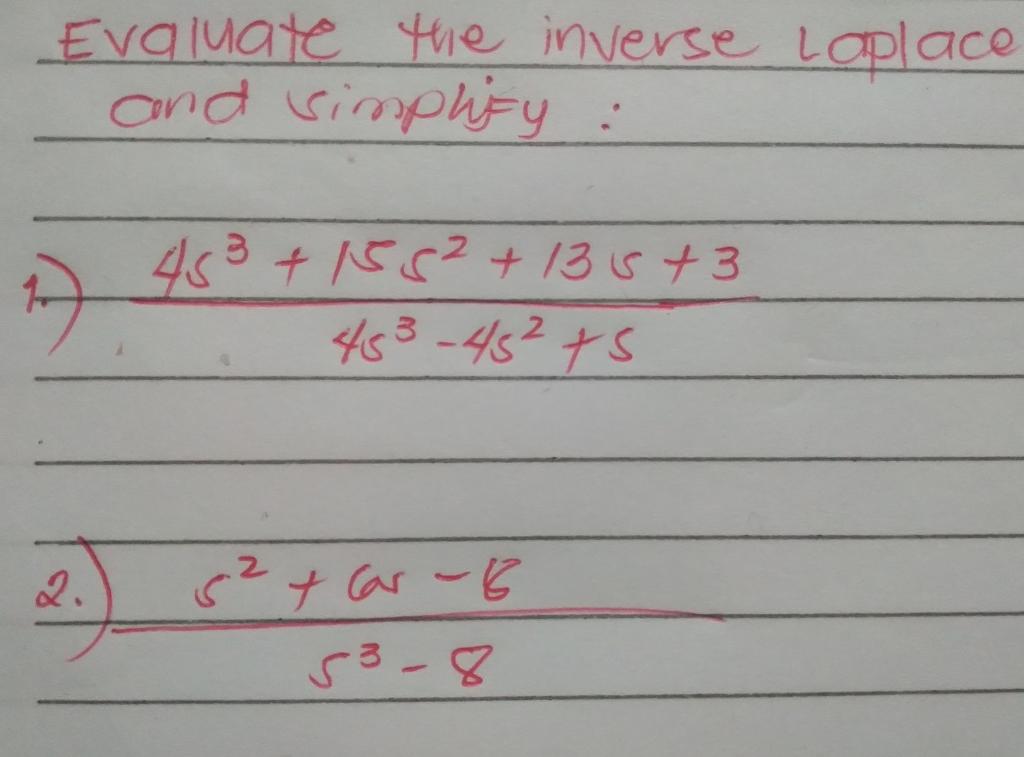 Evaluate the inverse Laplace
and simplify :
1.) 4s³ + 15s² + 13s + 3
4s³ - 4s² + s
2.) s² + 6s -
s³ - 8